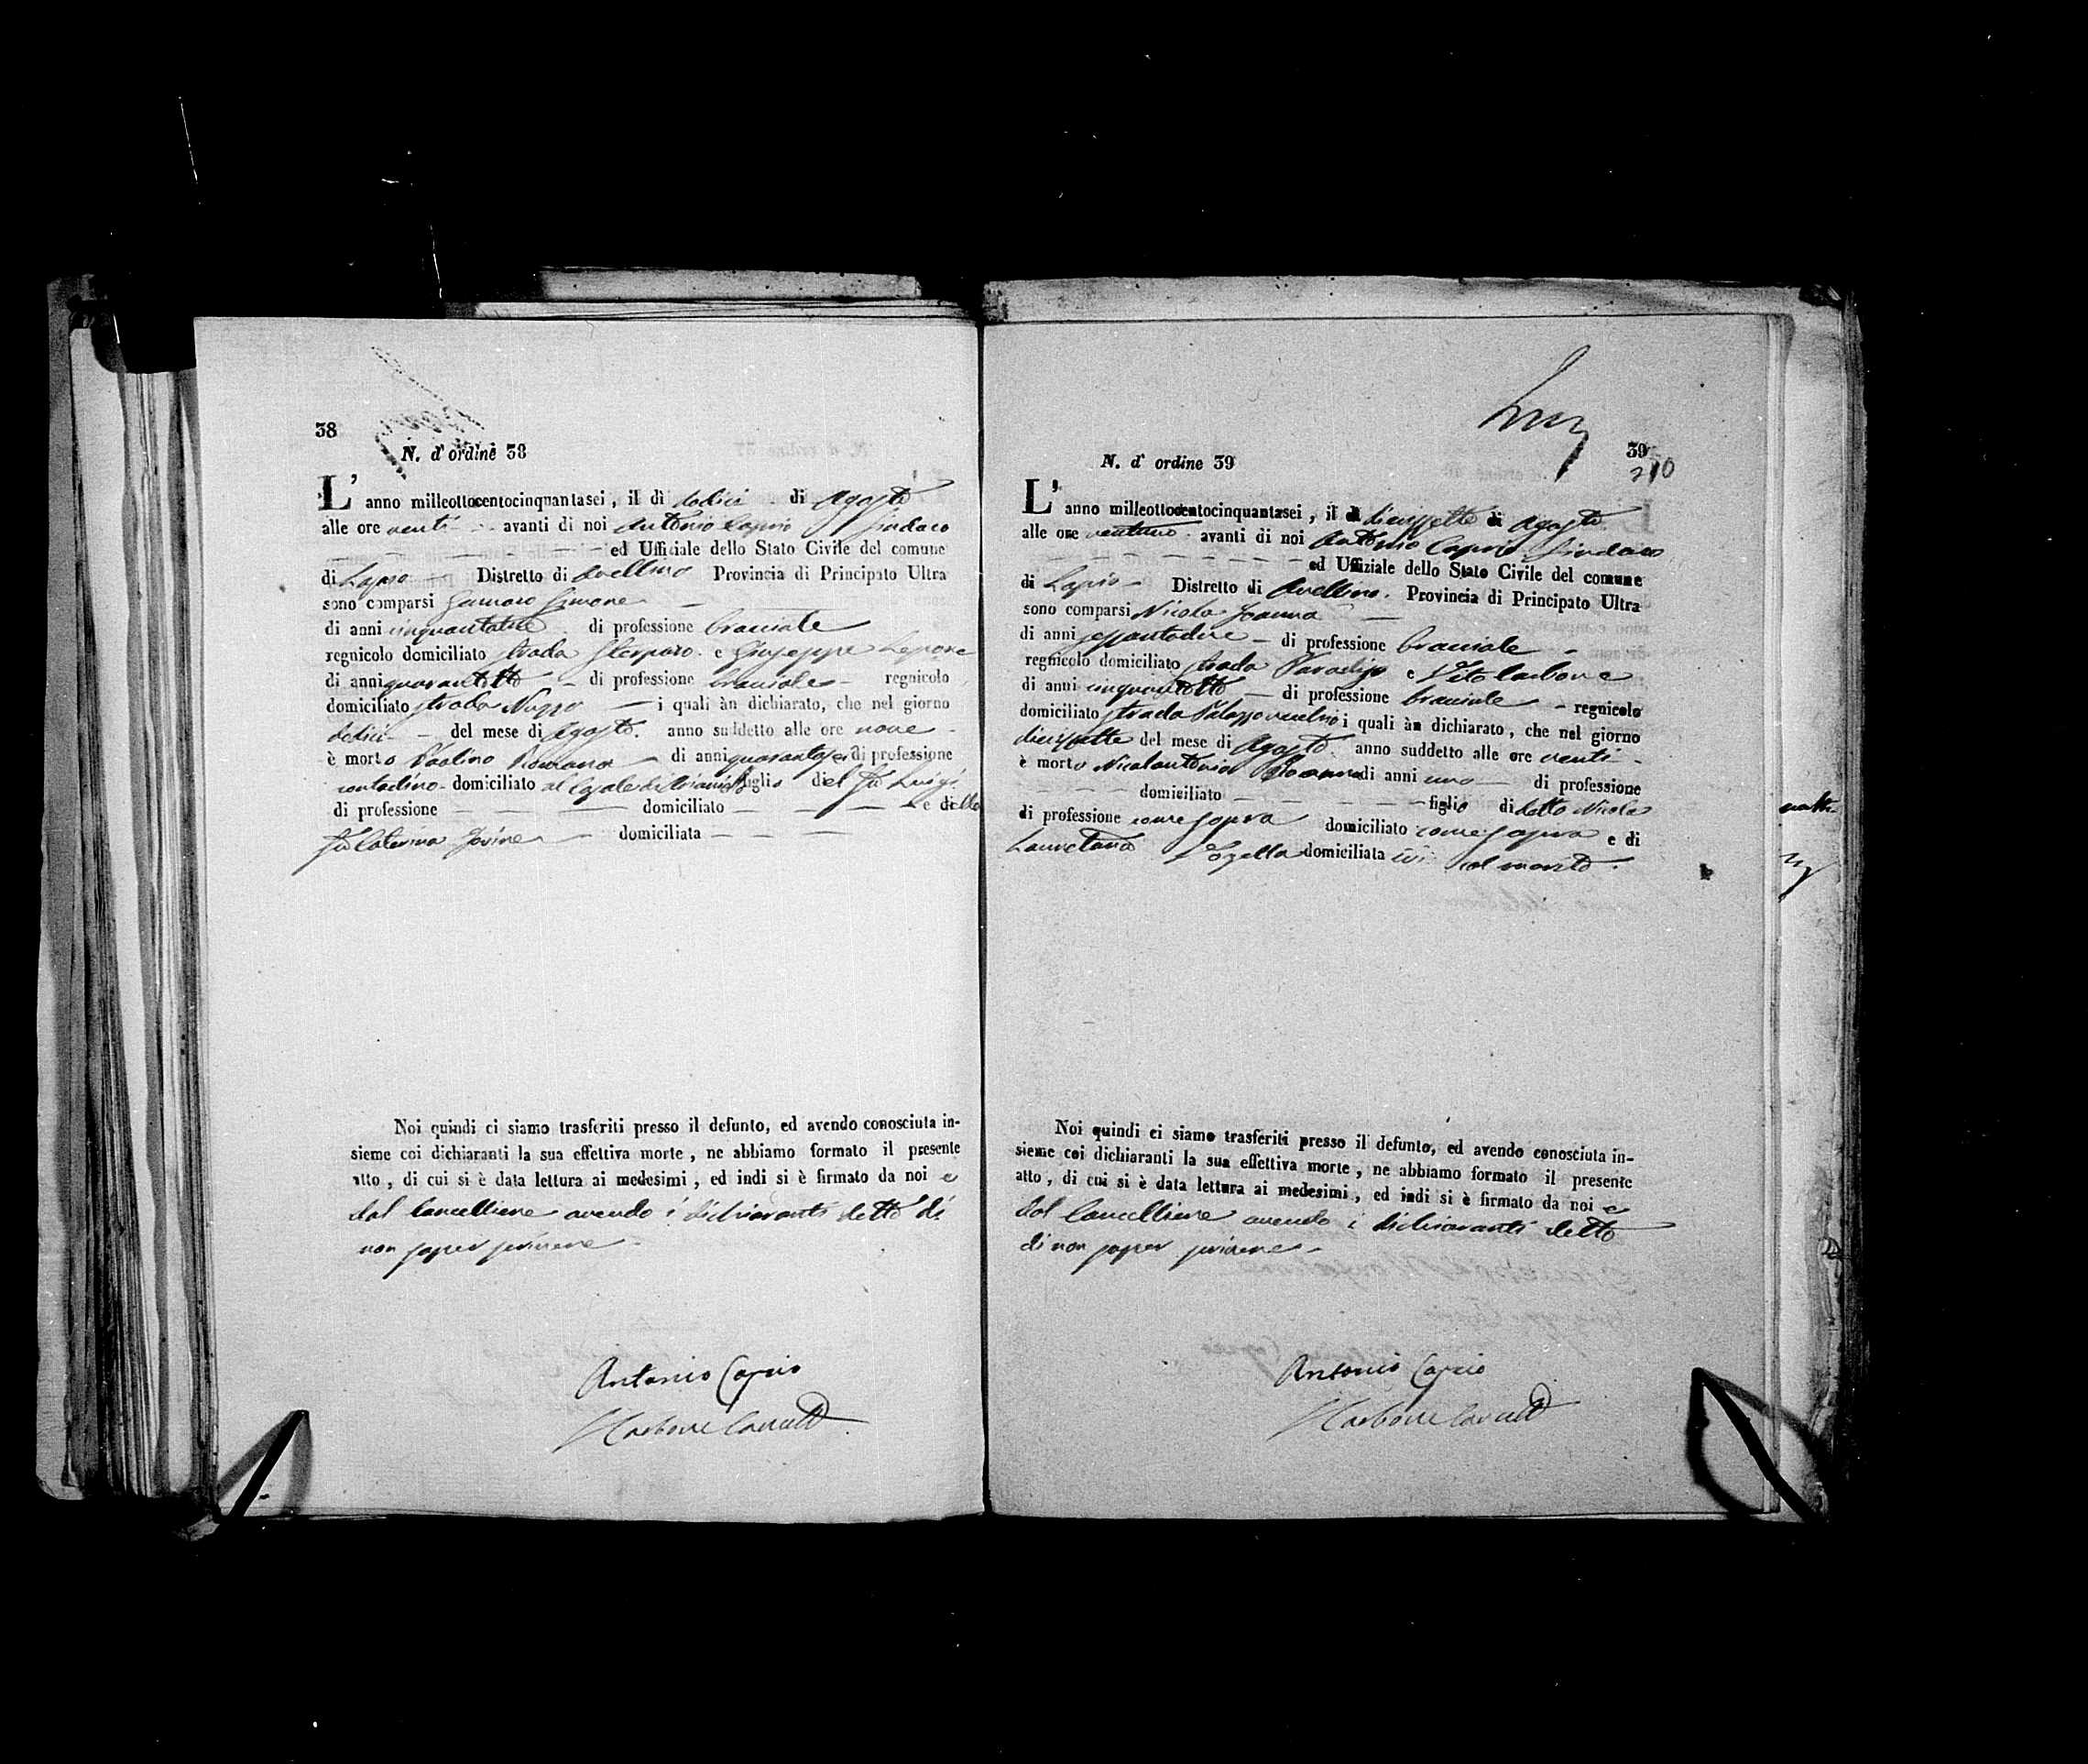 38
N. d'ordine 38
L' anno milleottocentocinquantasei, il dì dodici di Agosto
alle ore venti avanti di noi Antonio Caprio Sindaco
ed Uffiziale dello Stato Civile del comune
di Lapio Distretto di Avellino Provincia di Principato Ultra
sono comparsi Gennaro Simone
di anni cinquantatre di professione bracciale
regnicolo domiciliato strada e Giuseppe Lepore
di anni quarantotto di professione bracciale regnicolo
domiciliato strada Nuzzo i quali àn dichiarato, che nel giorno
dodici del mese di Agosto anno suddetto alle ore nove
è morto Paolino Romano di anni quarantasei di professione
contadino domiciliato al Casale di figlio del fu Luigi
di professione domiciliato e della
fu Caterina Iovine domiciliata
Noi quindi ci siamo trasferiti presso il defunto, ed avendo conosciuta in-
sieme coi dichiaranti la sua effettiva morte, ne abbiamo formato il presente
atto, di cui si è data lettura ai medesimi, ed indi si è firmato da noi e
dal Cancelliere avendo i dichiaranti detto di
non saper scrivere
Antonio Caprio
Carbone Cancell
39
210
N. d' ordine 39
L' anno milleottocentocinquantasei, il dì diecissette di Agosto
alle ore ventuno avanti di noi Antonio Caprio Sindaco
ed Uffiziale dello Stato Civile del comune
di Lapio Distretto di Avellino. Provincia di Principato Ultra
sono comparsi Nicola Joanna
di anni sessantadue di professione bracciale
regnicolo domiciliato strada Paradiso e Vito Carbone
di anni cinquantotto di professione bracciale regnicolo
domiciliato strada Palazzo vecchio i quali àn dichiarato, che nel giorno
diecissette del mese di Agosto anno suddetto alle ore venti
è morto Nicolantonio Joanna di anni uno di professione
domiciliato figlio di detto Nicola
di professione come sopra domiciliato come sopra e di
Lauretana Vozella domiciliata ivi col marito.
Noi quindi ci siamo trasferiti presso il defunto, ed avendo conosciuta in-
sieme coi dichiaranti la sua effettiva morte, ne abbiamo formato il presente
atto, di cui si è data lettura ai medesimi, ed indi si è firmato da noi e
dal Cancelliere avendo i dichiaranti detto
di non saper scrivere
Antonio Caprio
Carbone Cancell